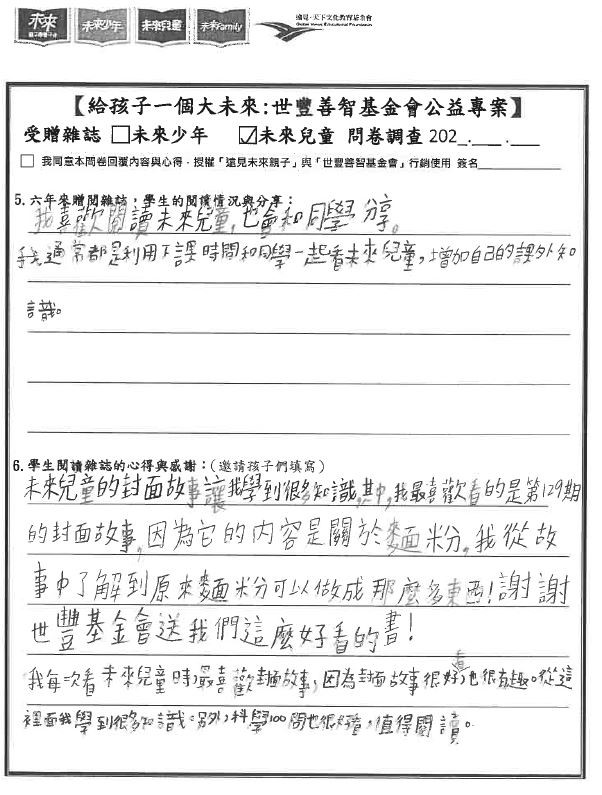 未來
親子學習平台
未來少年
未來兒童
未來Family
遠見・天下文化教育基金會
Global Views Educational Foundation
【給孩子一個大未來:世豐善智基金會公益專案】
受贈雜誌 □未來少年 ☑未來兒童 問卷調查 202_.__.__
□ 我同意本問卷回覆內容與心得,授權「遠見未來親子」與「世豐善智基金會」行銷使用 簽名
5.六年來贈閱雜誌,學生的閱讀情況與分享:
我喜歡閱讀未來兒童,也會和同學分享。
我通常都是利用下課時間和同學一起看未來兒童,增加自己的課外知
識。
6.學生閱讀雜誌的心得與感謝:(邀請孩子們填寫)
未來兒童的封面故事讓我學到很多知識,其中,我最喜歡看的是第129期
的封面故事,因為它的內容是關於麵粉,我從故
事中了解到原來麵粉可以做成那麼多東西!謝謝
世豐基金會送我們這麼好看的書!
我每次看未來兒童時,最喜歡封面故事,因為封面故事很好看,也很有趣。從這
裡面我學到很多知識。另外,科學100問也很好看,值得閱讀。